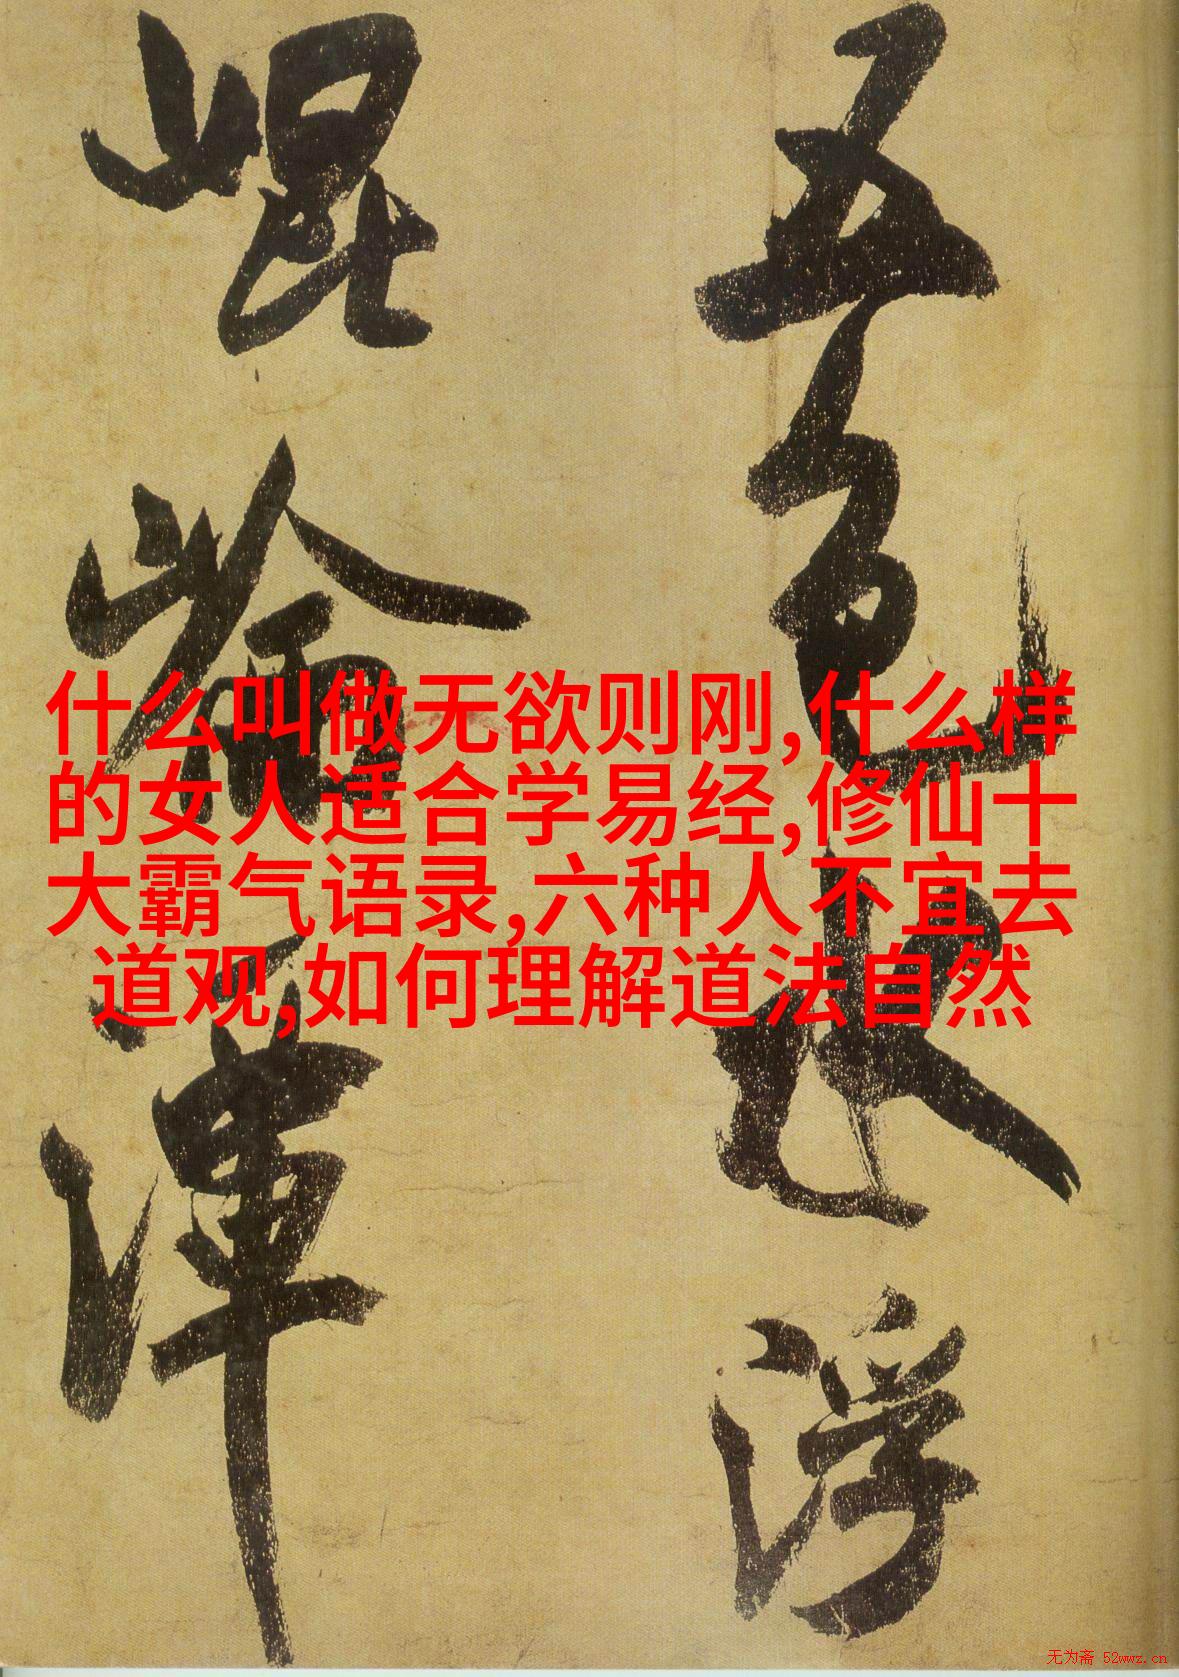 五色水浮
崐崘潭
什么叫做无欲则刚,什么样
的女人适合学易经,修仙十
大霸气语录,六种人不宜去
道观,如何理解道法自然
无为斋 52wwz.cn